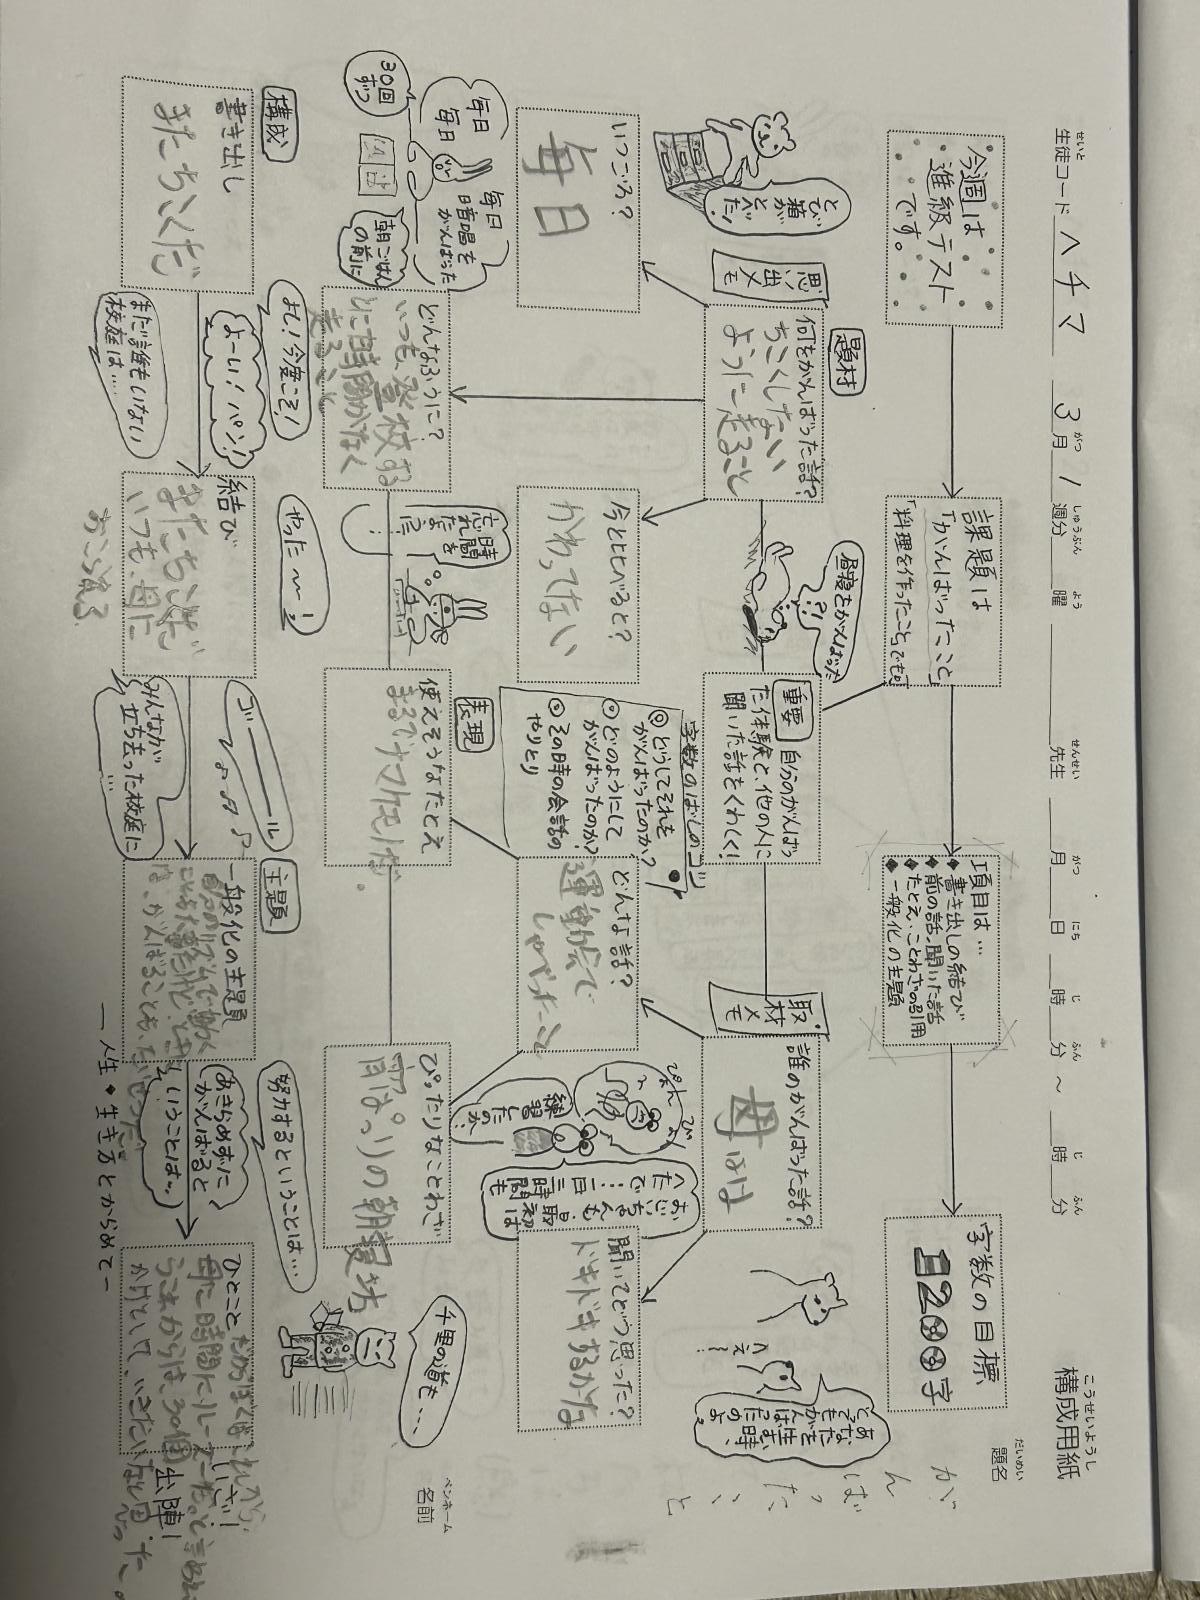 構成用紙
こうせいようし
せいと
生徒コード ハチマ 3月1週分 曜 先生 月 日 時 分 ~ 時 分
がつ しゅうぶん よう せんせい がつ にち じ ふん じ ふん
だいめい
題名
がんばったこと
ペンネーム
名前
今週は
進級テスト
です。
課題は
「がんばったこと」
「料理を作ったこと」でも。
項目は…
◆書き出しの結び
◆前の話、聞いた話
◆たとえ、ことわざの引用
◆一般化の主題
字数の目標
1200字
とび
箱が
とべた!
思い出メモ
題材
何をがんばった話?
ちこくしない
ように走ること
昼寝をがんばった
?!
重要
自分のがんばっ
た体験と、他の人に
聞いた話をくわしく!
取材メモ
誰のがんばった話?
母はは
へえ!
あなたを
産む時、
とてもがんばったのよ。
いつごろ?
毎日
今と比べると?
かわってない
字数のばしのコツ
◎どうしてそれを
がんばったのか?
◎どのようにして
がんばったのか?
◎その時の会話の
やりとり
どんな話?
運動会で
しゃべったこと
ぴょん
ぴょん
練習
したのか
おじいちゃんも、最初は
へたで…一日三時間も
聞いてどう思った?
ドキドキするかな
毎日
毎日
30回
ずつ
毎日
暗唱を
がんばった
朝ごはん
の前に
どんなふうに?
いつも、登校する
とに時間がなく
走ること
時間を
忘れ
表現
使えそうなたとえ
ぴったりなことわざ
宵っぱりの朝寝坊
千里の道も…
構成
書き出し
またちこくだ
よし!今度こそ!
よーい!パン!
まだ誰もいない
校庭は…
結び
またちこくだ
いつも、母に
おこられる
やったー!
ゴール
みんなが
立ち去った校庭に
…
主題
一般化の主題
努力するということは…
あきらめずに
がんばると
いうことは…
ー人生◆生き方とからめてー
ひとこと
いざ!
出陣!